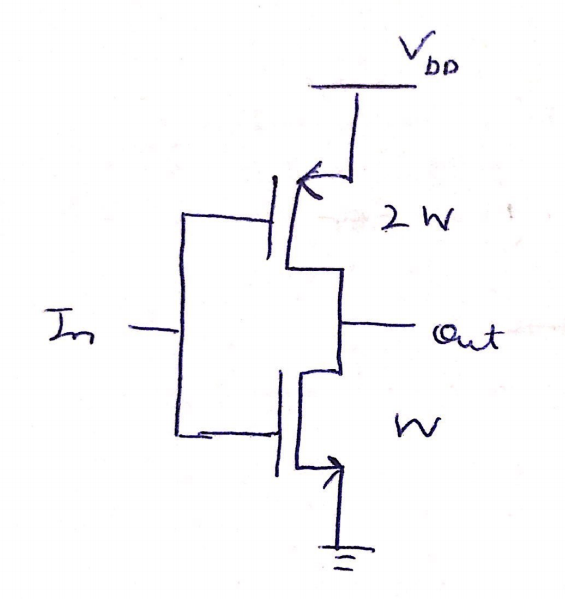 VDD
2W
In
Out
W